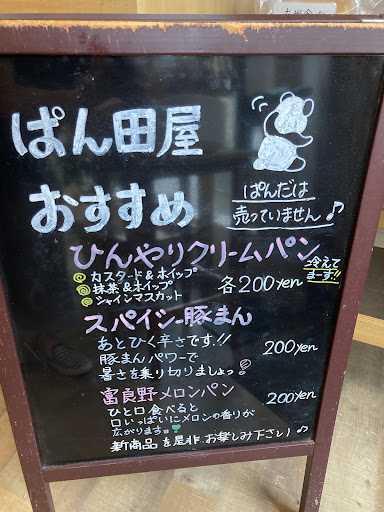 ぱん田屋
おすすめ
ぱんだは
売っていません♪
ひんやりクリームパン
冷えて
まーす!!
カスタード&ホイップ
抹茶&ホイップ
シャインマスカット
各200yen
スパイシー豚まん
あとひく辛さです!!
豚まんパワーで
暑さを乗り切りましょっ!
200yen
富良野メロンパン
200yen
ひと口食べると
口いっぱいにメロンの香りが
広がりますョ
新商品を是非お楽しみ下さい♪